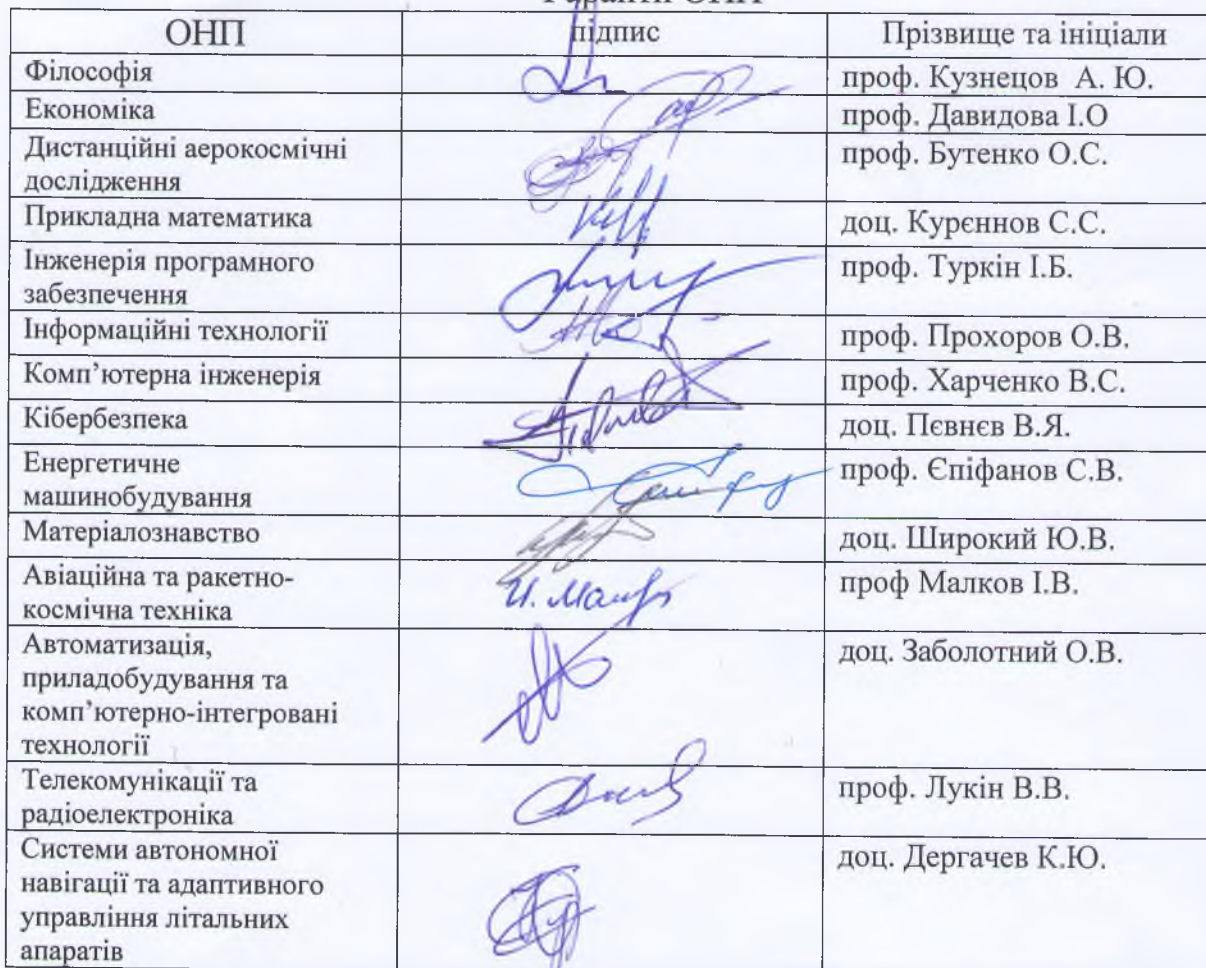 Гаранти ОНП
ОНП підпис Прізвище та ініціали
Філософія проф. Кузнецов А. Ю.
Економіка проф. Давидова І.О
Дистанційні аерокосмічні
дослідження
проф. Бутенко О.С.
Прикладна математика доц. Курєннов С.С.
Інженерія програмного
забезпечення
проф. Туркін І.Б.
Інформаційні технології проф. Прохоров О.В.
Комп’ютерна інженерія проф. Харченко В.С.
Кібербезпека доц. Пєвнєв В.Я.
Енергетичне
машинобудування
проф. Єпіфанов С.В.
Матеріалознавство доц. Широкий Ю.В.
Авіаційна та ракетно-
космічна техніка
проф Малков І.В.
Автоматизація,
приладобудування та
комп’ютерно-інтегровані
технології
доц. Заболотний О.В.
Телекомунікації та
радіоелектроніка
проф. Лукін В.В.
Системи автономної
навігації та адаптивного
управління літальних
апаратів
доц. Дергачев К.Ю.